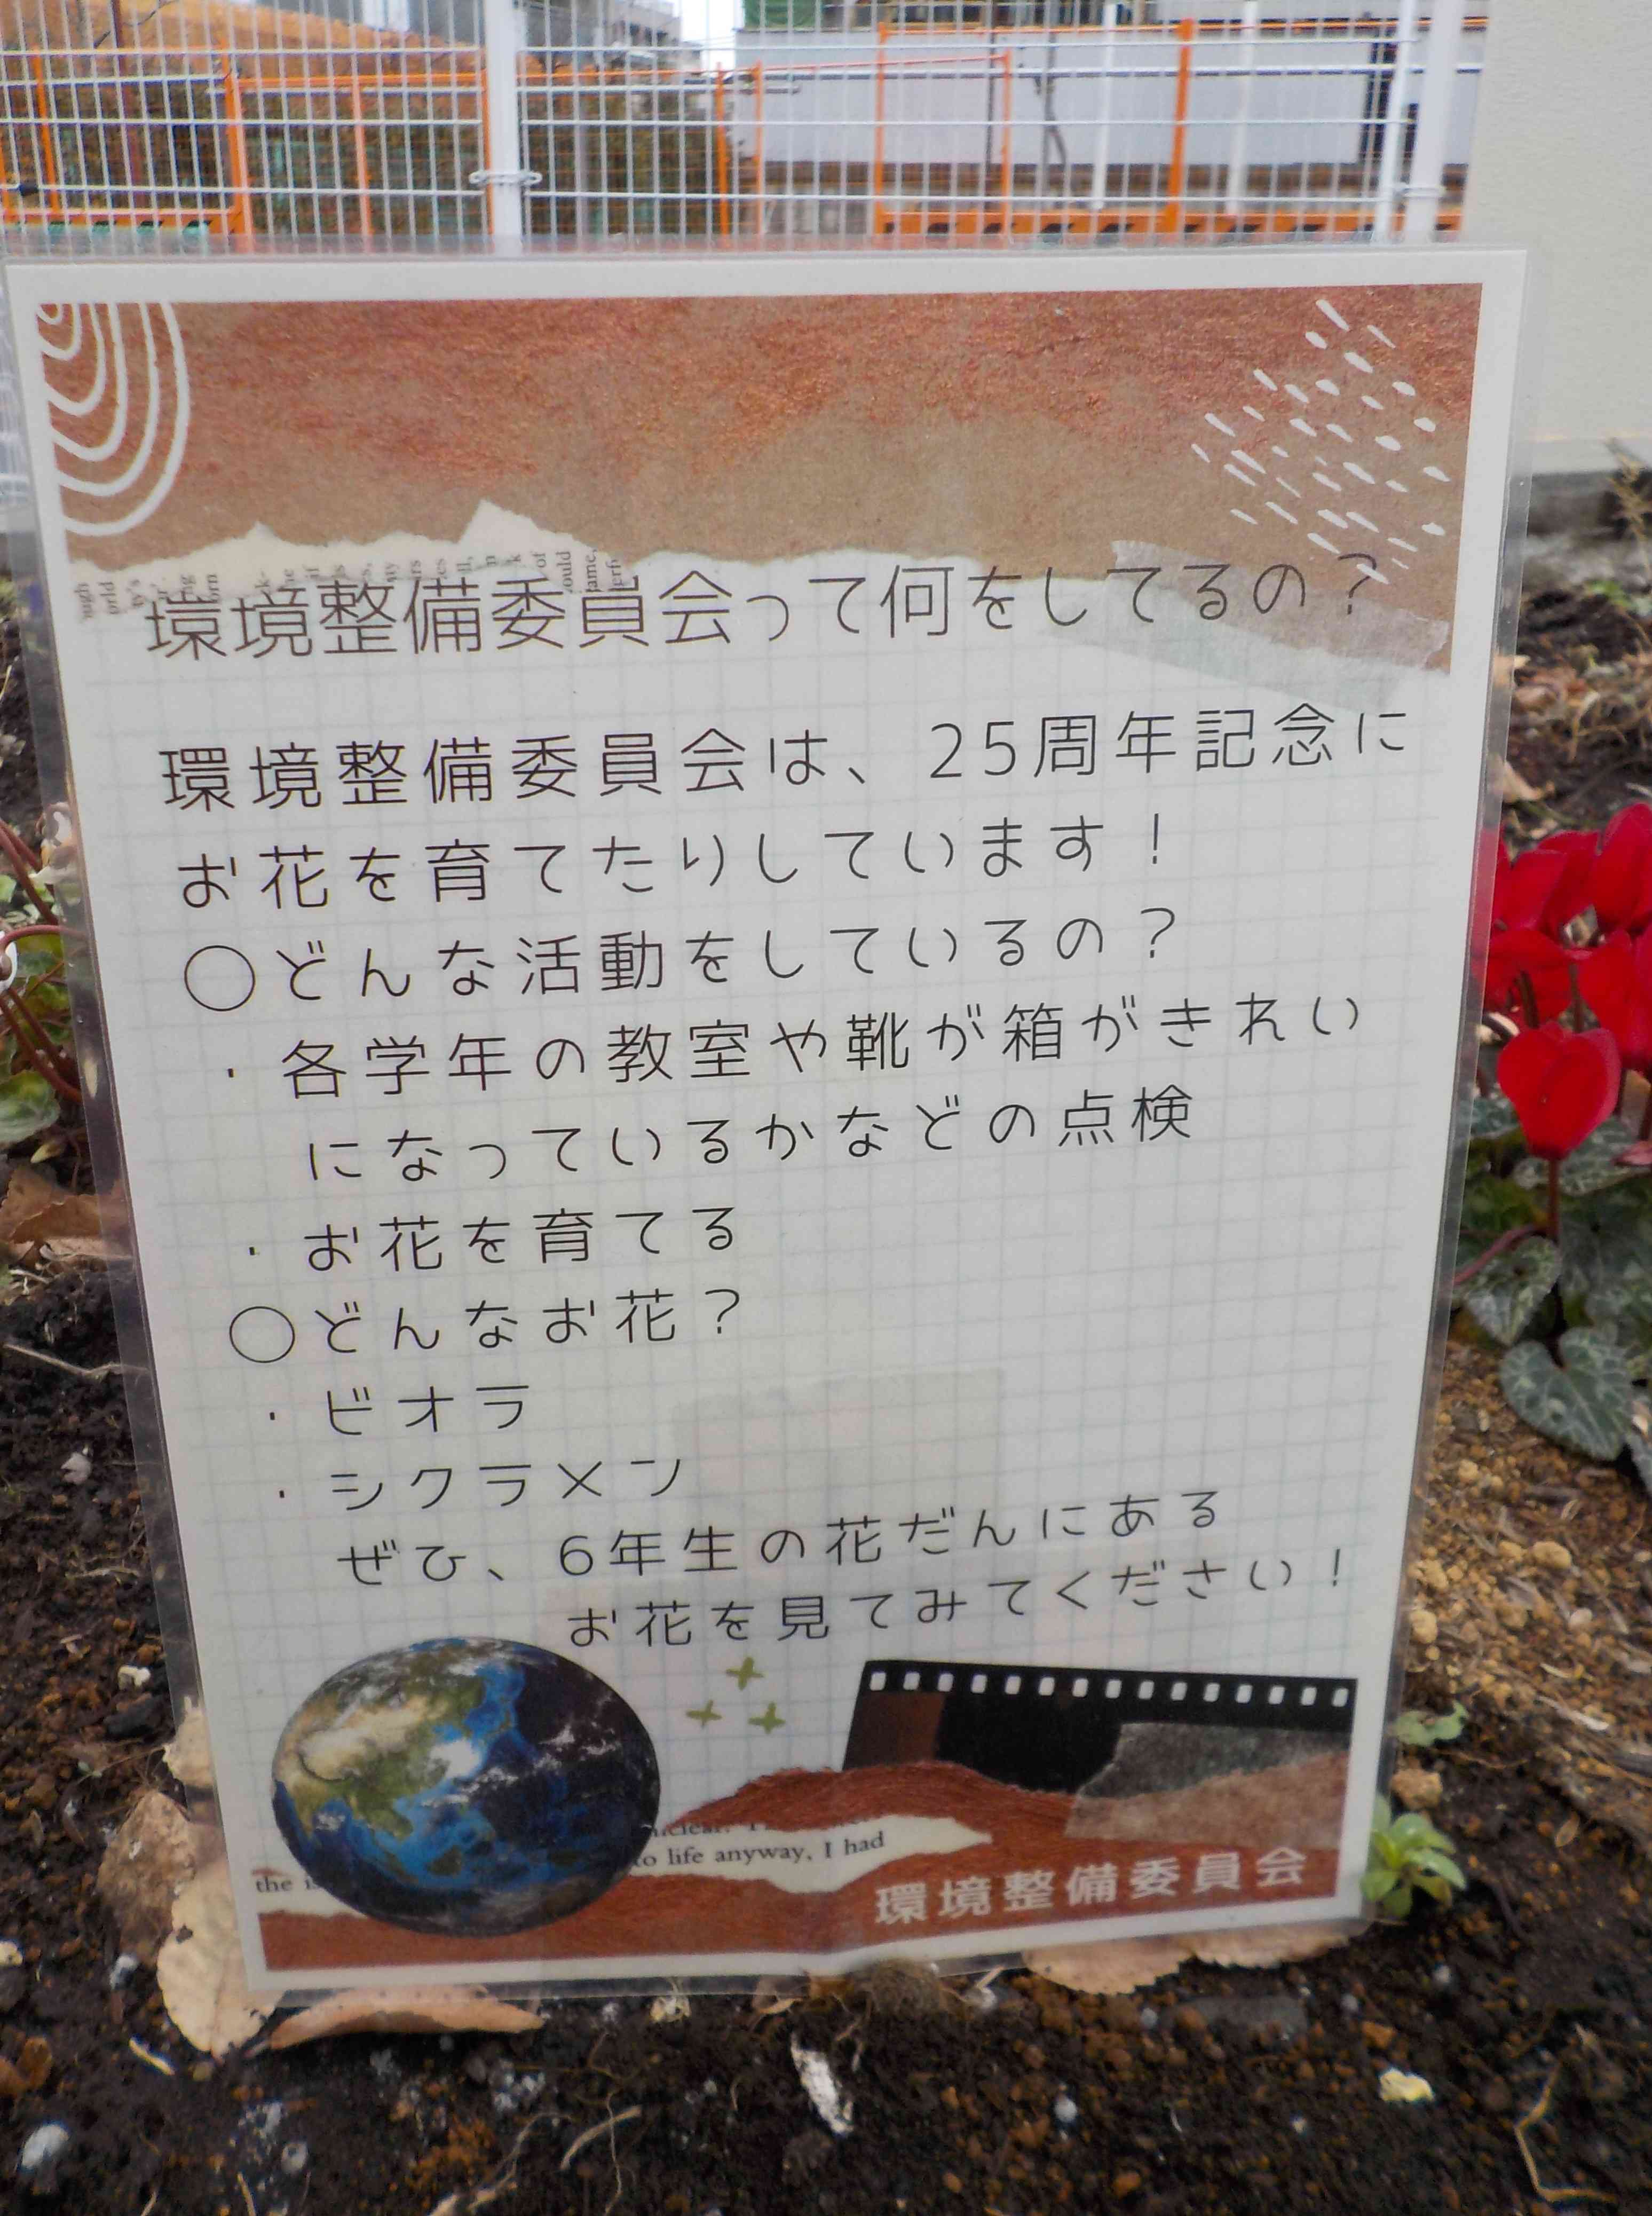 環境整備委員会って何をしてるの？
環境整備委員会は、25周年記念に
お花を育てたりしています！
○どんな活動をしているの？
・各学年の教室や靴が箱がきれい
になっているかなどの点検
・お花を育てる
○どんなお花？
・ビオラ
・シクラメン
ぜひ、6年生の花だんにある
お花を見てみてください！
to life anyway, I had
the
環境整備委員会